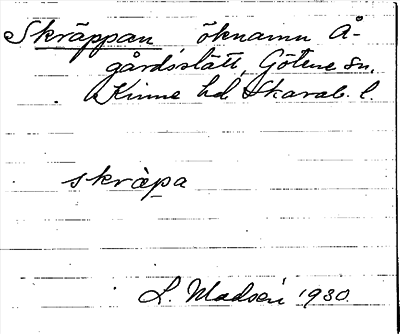 Skräppan öknamn Å-
gårdsslätt, Götene sn,
Kinne hd Skarab. l
skràpa
L. Madsén 1930.